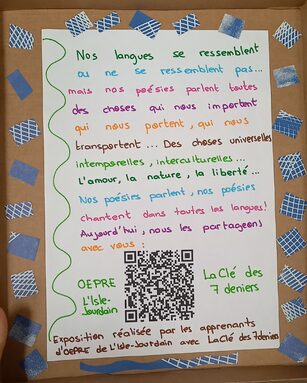 Nos langues se ressemblent
ou ne se ressemblent pas...
mais nos poésies parlent toutes
des choses qui nous importent
qui nous portent, qui nous
transportent... Des choses universelles
intemporelles, interculturelles...
L'amour, la nature, la liberté...
Nos poésies parlent, nos poésies
chantent dans toutes les langues!
Aujourd'hui, nous les partageons
avec vous :
OEPRE
L'Isle-
Jourdain
La Clé des
7 deniers
Exposition réalisée par les apprenants
d'OEPRE de L'Isle-Jourdain avec La Clé des 7 deniers